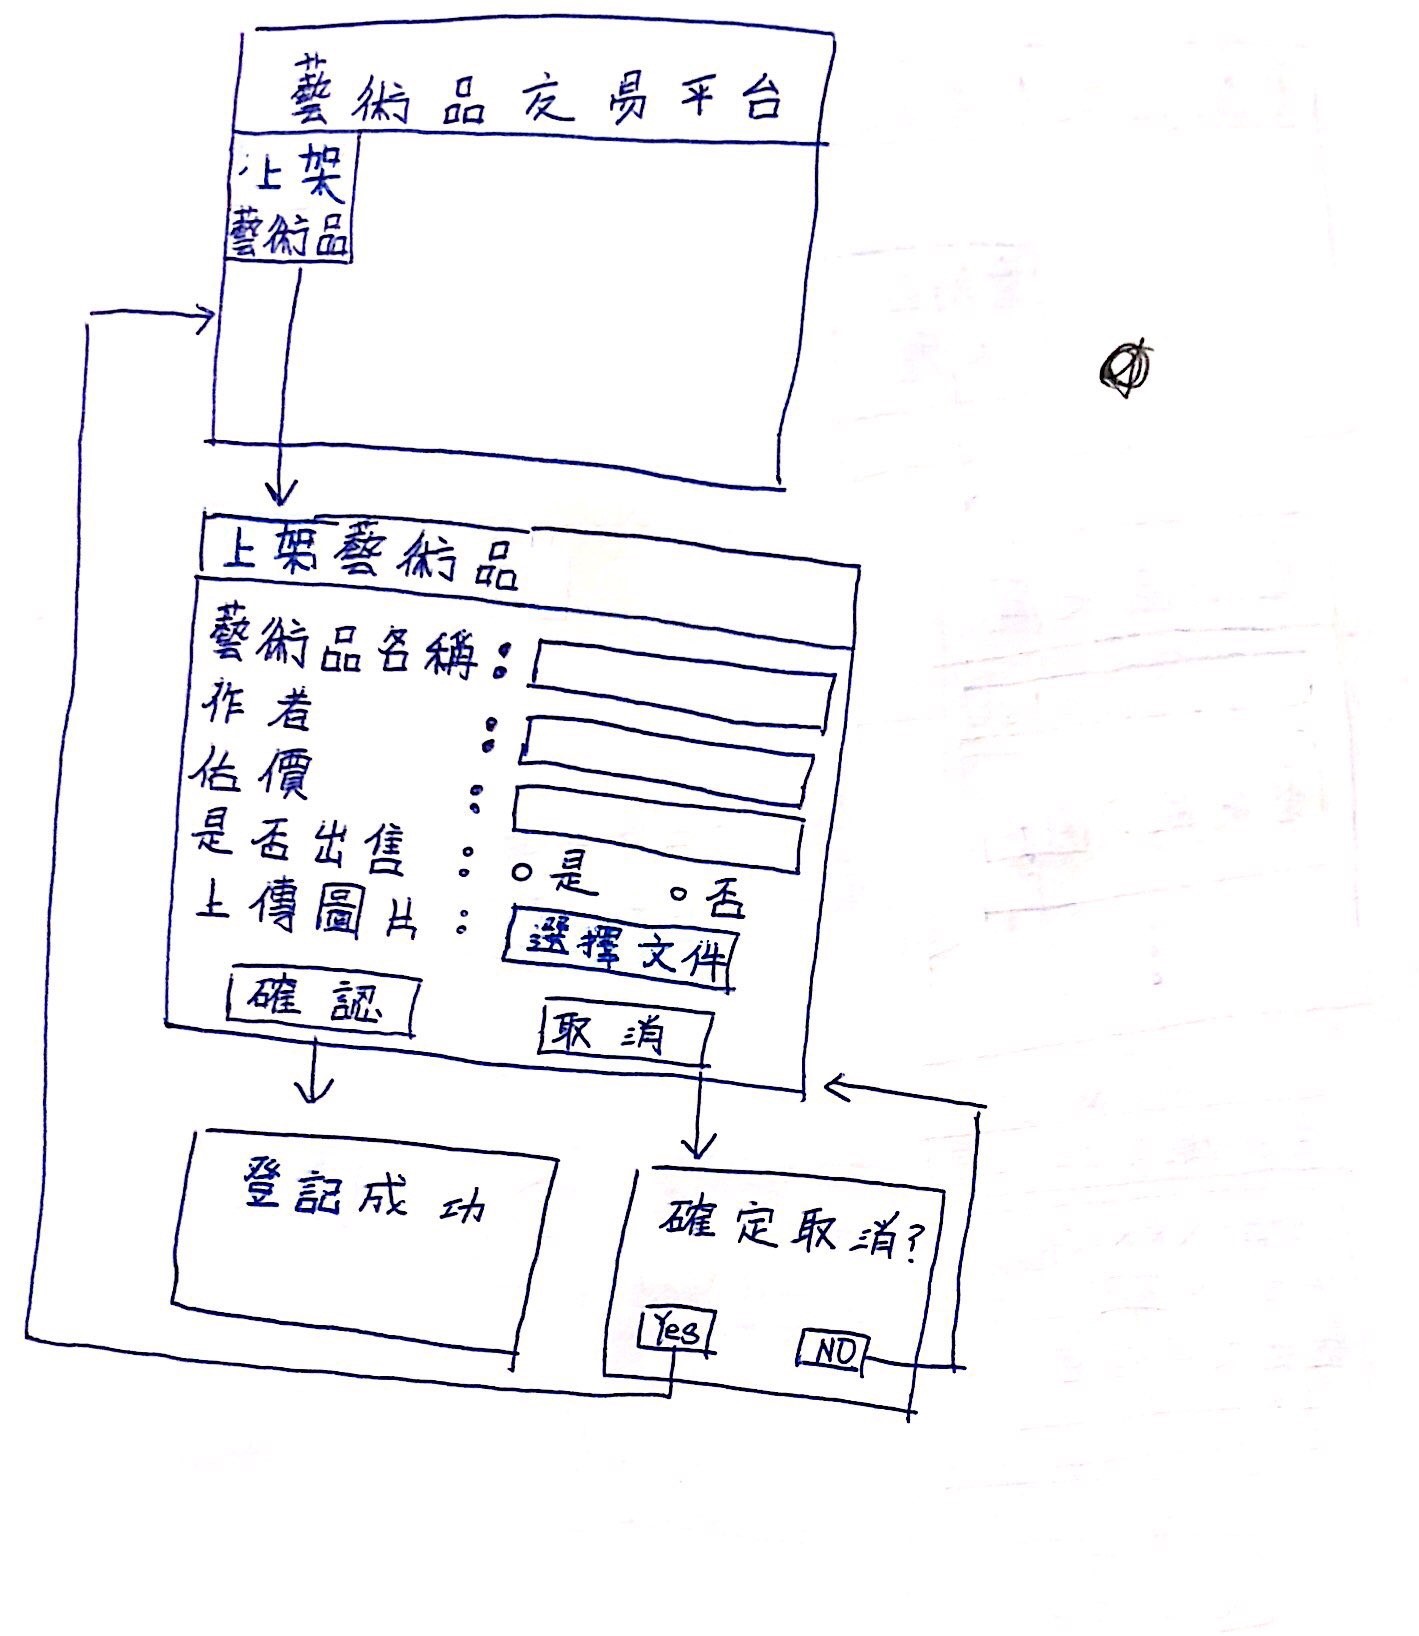 藝術品交易平台
上架
藝術品
上架藝術品
藝術品名稱:
作者 :
估價 :
是否出售 : 是 否
上傳圖片 : 選擇文件
確認 取消
登記成功
確定取消?
Yes NO